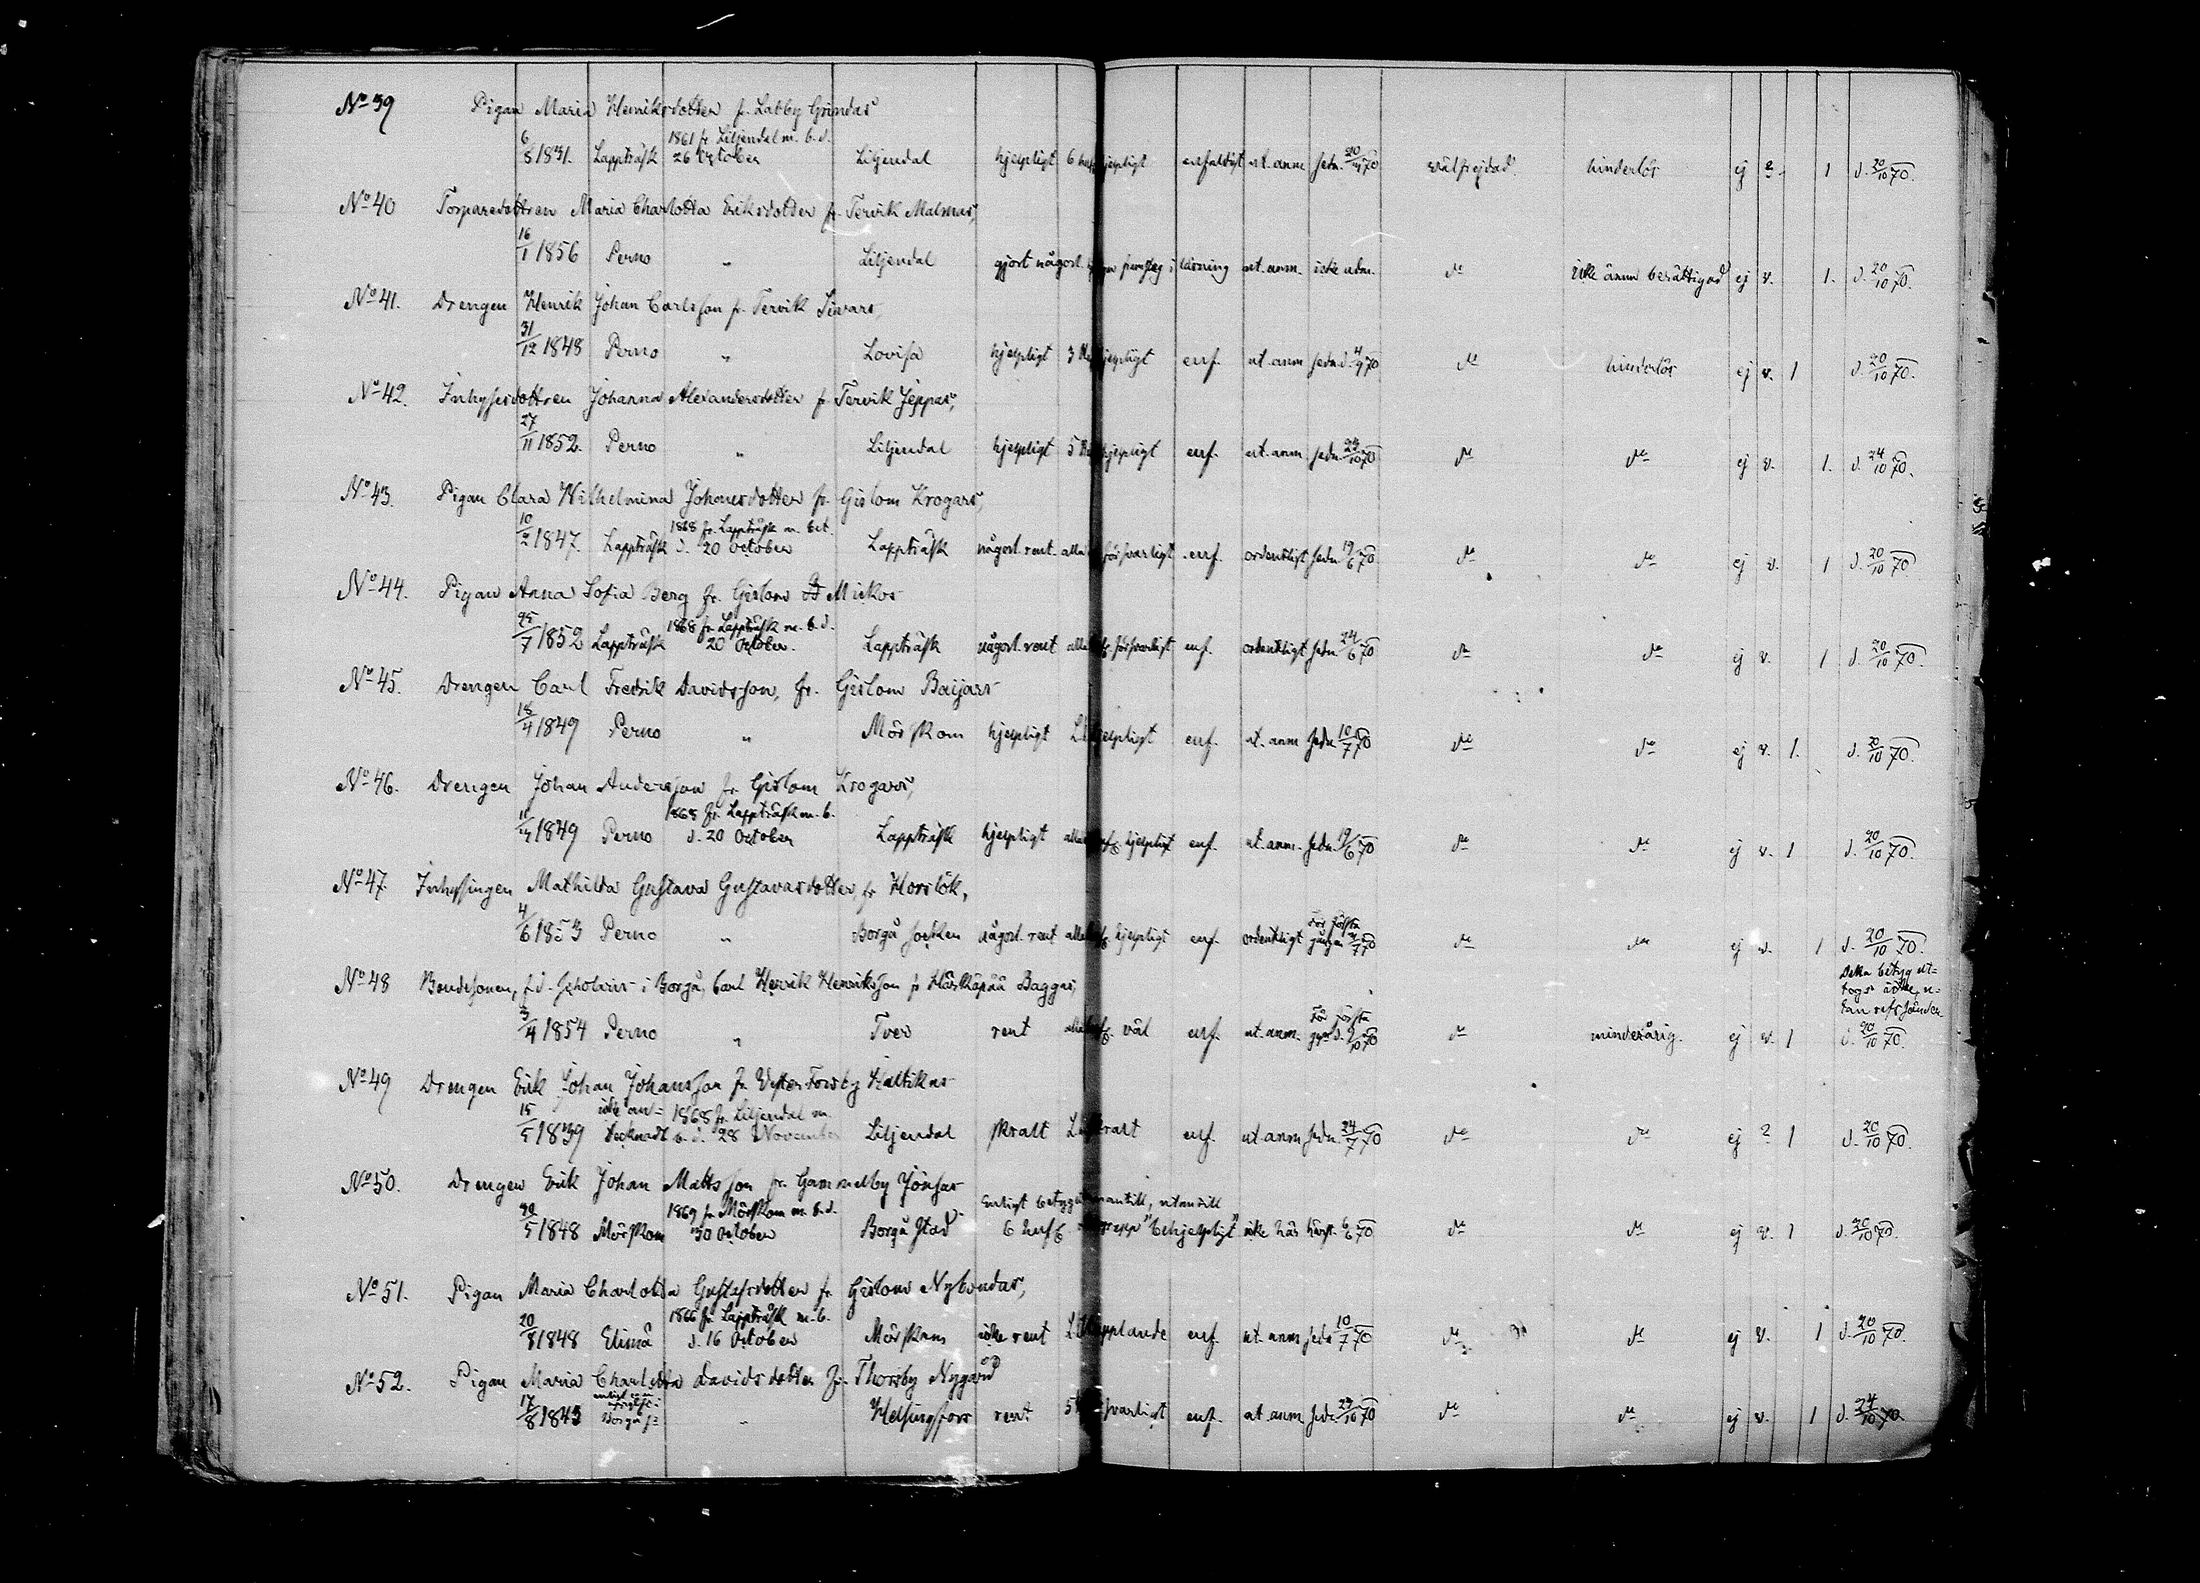 No 39 Pigan Maria Henriksdotter fr. Labby Grindas
1861 fr. Liljendal m. b. d.
6/8 1831. Lappträsk 26 October Liljendal hjelpligt 6 hjelpligt enfaldigt ut. anm. sedn. 20/ 70 välfrejdad hinderlös ej 1 d. 20/10 70.
No 40 Torparedottren Maria Charlotta Eriksdotter fr. Tervik Malmas,
16/1 1856 Perno " Liljendal gjort någorl. framsteg i läsning ut. anm. icke adm. do icke ännu berättigad ej v. 1. d. 20/10 70.
No 41. Drengen Henrik Johan Carlsson fr. Tervik Sivars,
31/12 1848 Perno " Lovisa hjelpligt 3 hjelpligt enf. ut. anm sedn. d. 4/9 70 do hinderlös ej v. 1 d. 20/10 70.
No 42. Inhysesdottren Johanna Alexandersdotter fr. Tervik Jeppas,
27/11 1852. Perno " Liljendal hjelpligt 5 hjelpligt enf. ut. anm. sedn. 23/10 70 do do ej v. 1. d. 24/10 70.
No 43. Pigan Clara Wilhelmina Johansdotter fr. Gislom Krogars,
1868 fr. Lappträsk m. bet.
10/2 1847. Lappträsk d. 20 October Lappträsk någorl. rent. alla försvarligt enf. ordentligt sedn 19/6 70 do do ej v. 1 d. 20/10 70
No 44. Pigan Anna Sofia Berg fr. Gislom Mickos
1868 fr. Lappträsk m. b. d.
25/7 1852 Lappträsk 20 October. Lappträsk någorl. rent alla försvarligt enf. ordentligt sedn. 24/6 70 do do ej v. 1 d. 20/10 70.
No 45. Drengen Carl Fredrik Davidsson, fr. Gislom Baijars
18/4 1849 Perno " Mörskom hjelpligt hjelpligt enf. ut. anm sedn 10/7 70 do do ej v. 1. d. 20/10 70.
No 46. Drengen Johan Andersson fr. Gislom Krogars,
1868 fr. Lappträsk m. b.
1849 Perno d. 20 October Lappträsk hjelpligt alla hjelpligt enf. ut. anm. sedn. 19/6 70 do do ej v. 1 d. 20/10 70.
No 47. Inhysingen Mathilda Gustava Gustavasdotter, fr Horslök,
för första
4/6 1853 Perno " Borgå socken någorl. rent alla hjelpligt enf. ordentligt gången 70 do do ej v. 1 d. 20/10 70.
No 48 Bondesonen, f.d. scholaris i Borgå, Carl Henrik Henriksson fr Härkäpää Baggas,
Detta betyg uttogs icke, utan
för första
3/4 1854 Perno " Tver rent alla väl enf. ut. anm. do minderårig. ej v. 1 d. 20/10 70.
No 49 Drengen Erik Johan Johansson fr Vester Forsby Kaltikas
icke an- 1868 fr. Liljendal m.
15/5 1839 tecknadt b. d. 28 November Liljendal skralt skralt enf. ut anm sedn. 24/7 70 do do ej ? 1 d. 20/10 70.
No 50. Drengen Erik Johan Mattsson fr. Gammelby Jönsas
1869 fr. Mörskom m. b. d. Enligt betyget innantill, utantill
1848 Mörskom 30 October Borgå stad 6 "behjelpligt" icke här 6/6 70 do do ej v. 1 d. 20/10 70.
No 51. Pigan Maria Charlotta Gustafsdotter fr. Gislom Nybondas,
1866 fr. Lappträsk m. b.
20/8 1848 Elimä d. 16 October Mörskom icke rent enf. ut. anm sedn 10/7 70 do do ej v. 1 d. 20/10 70.
No 52. Pigan Maria Charlotta Davidsdotter fr. Thorsby Nygård
17/8 1843 Borgå " Helsingfors rent försvarligt enf. ut. anm. sedn. 23/10 70 do do ej v. 1 d. 24/10 70.